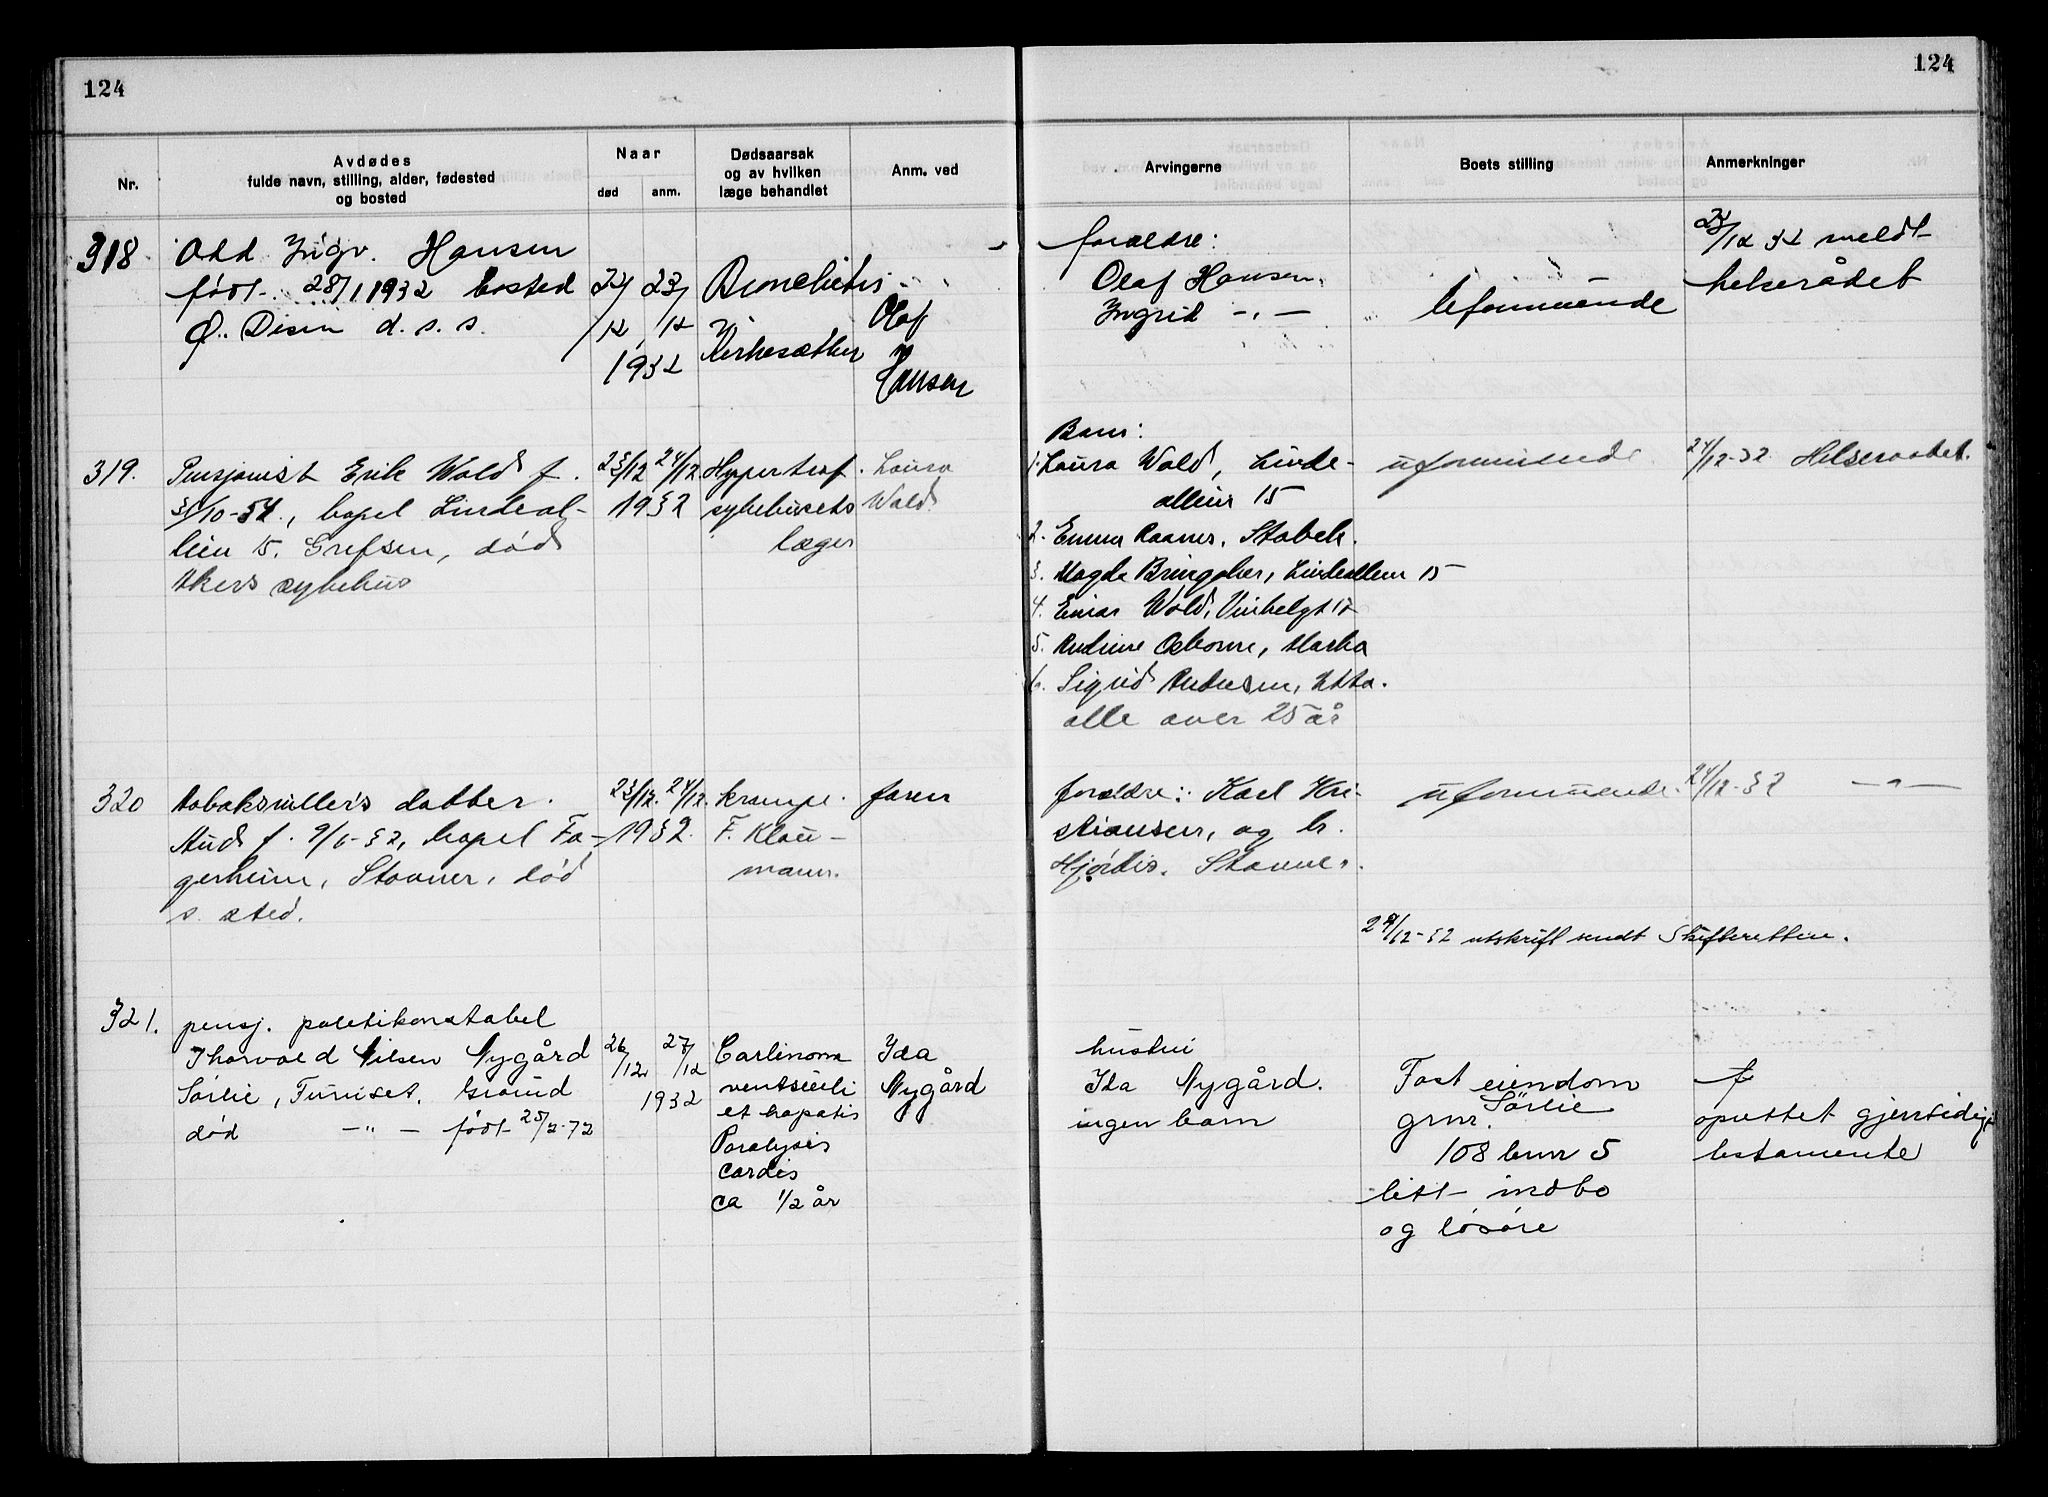 124
124
Nr.
Avdødes
fulde navn, stilling, alder, fødested
og bosted
Naar
død
anm.
Dødsaarsak
og av hvilken
læge behandlet
Anm. ved
Arvingerne
Boets stilling
Anmerkninger
318
Odd Yngv. Hansen
født 28/1 1932 bosted
Ø. Disin d. s. s.
22/12 23/12
1932
Bronchitis
Kirkesæther
Olaf
Hansen
foreldre:
Olaf Hansen,
Yngrid -"-
uformuende
23/12 32 meldt
helserådet
319.
Pensjonist Erik Wold f.
5/10-54, bopel Lindeal-
leen 15, Grefsen, død
Akers sykehus
23/12 24/12
1932
Hypertrof.
sykehusets
læger
Laura
Wold
Barn:
1. Laura Wold, Linde-
alleen 15
2. Emma Raaner, Stabek.
3. Magda Bringaker, Lindealleen 15
4. Einar Wold,
5. Andrine Osborne,
6. Sigrid Andersen,
alle over 25 år
uformuende
24/12-32. Helseraadet.
320
datter
Aud f. 9/6-32, bopel Fa-
gerheim, Stovner, død
s. sted.
23/12. 24/12.
1932.
krampe.
F. Klou-
mann.
faren
foreldre: Karl Kri-
stiansen, og h.
Hjørdis. Stovner.
uformuende.
24/12-32 -"-
29/12-32 utskrift sendt Skifteretten.
321.
pensj. politikonstabel
Thorvald Nilsen Nygård
Sørlie, Furuset, Grorud
død -"- født 25/2-72
26/12 27/12
1932
Carcinoma
ventriculi
et hepatis
Paralysis
cordis
ca 1/2 år
Ida
Nygård
hustru
Ida Nygård.
ingen barn
Fast eiendom
Sørlie
grnr.
108 brnr 5
litt indbo
og løsøre
oprettet gjensidig
testamente